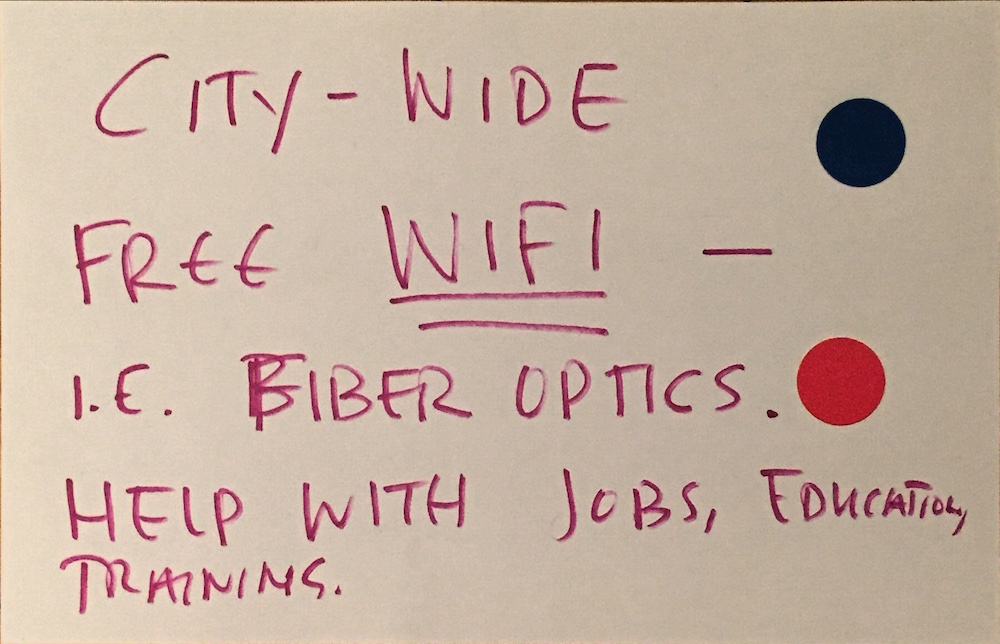 CITY-WIDE
FREE WIFI —
I.E. FIBER OPTICS.
HELP WITH JOBS, EDUCATION,
TRAINING.